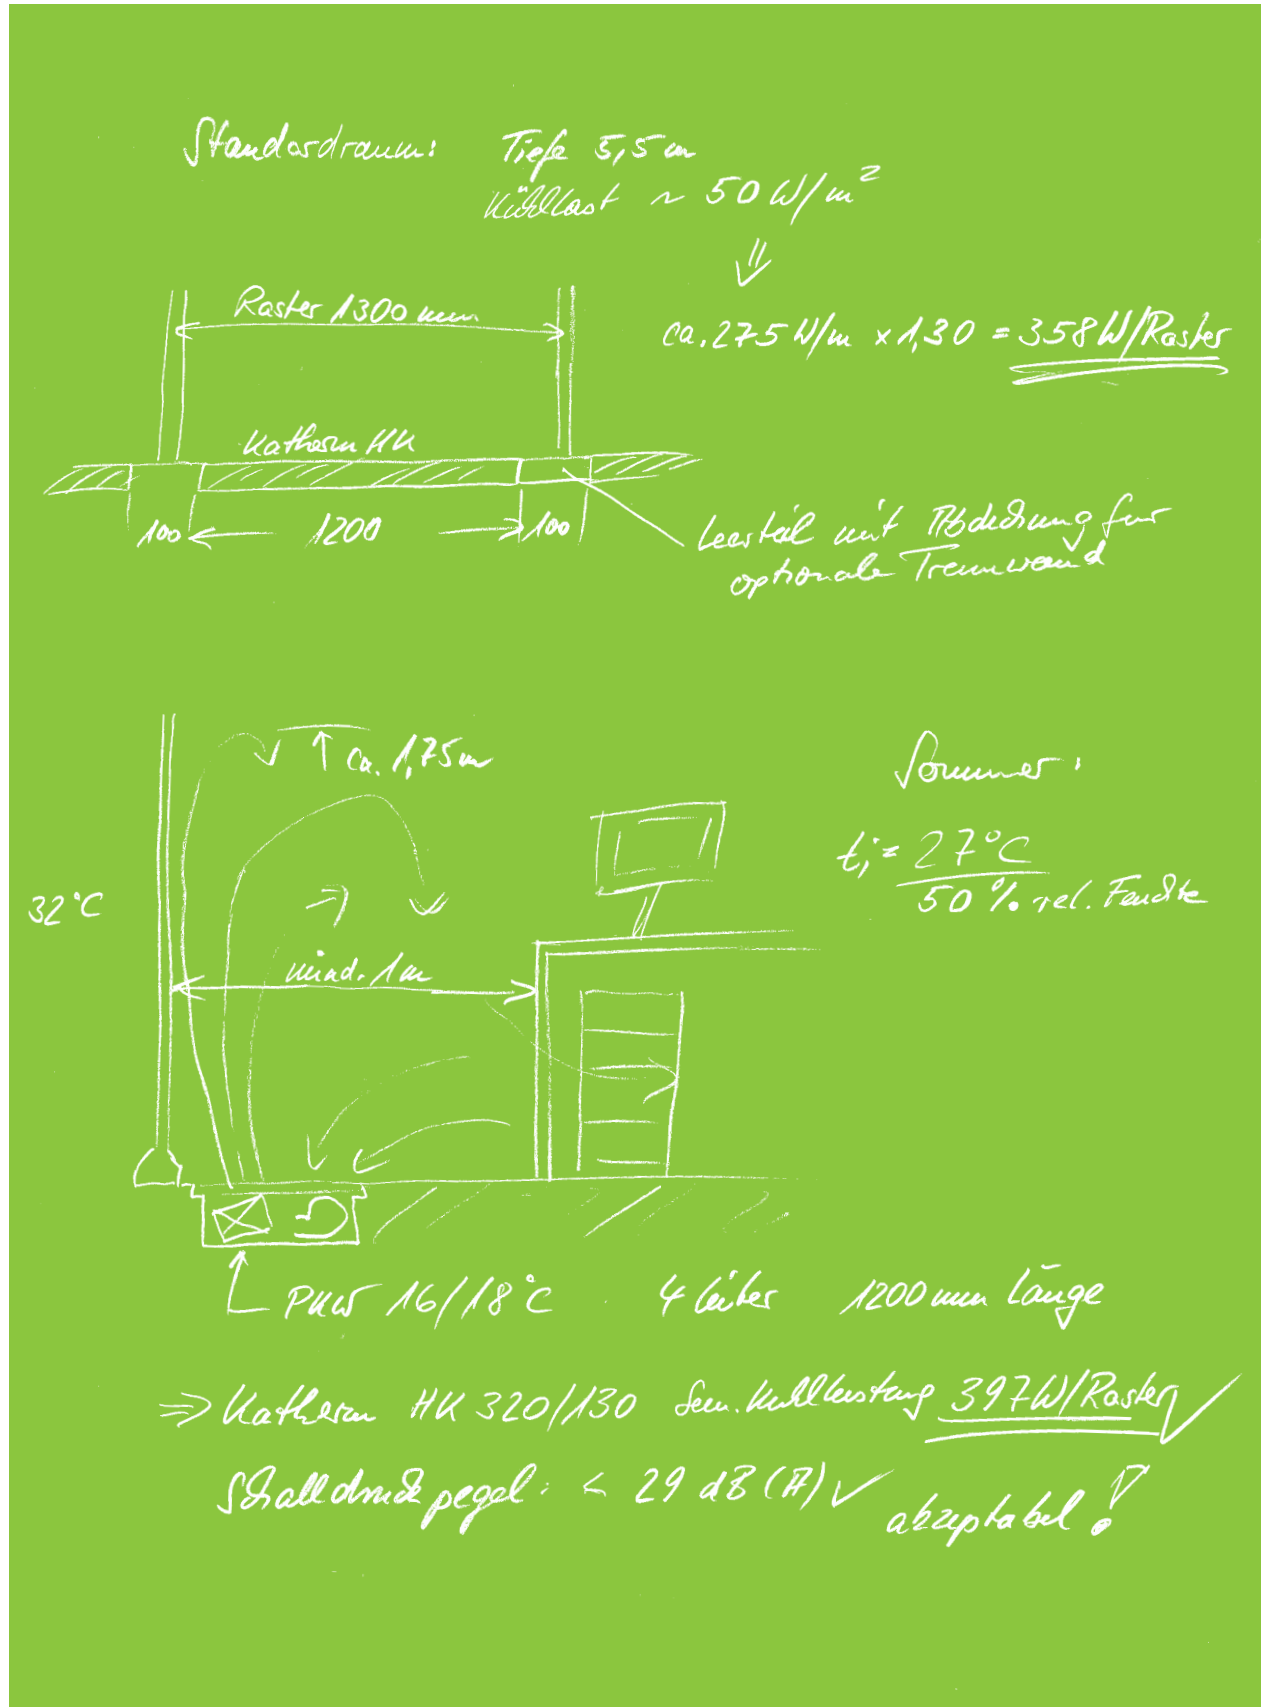 Standardraum: Tiefe 5,5 m
Kühllast ~ 50 W/m²
⇓
Raster 1300 mm
ca. 275 W/m x 1,30 = 358 W/Raster
Katherm HK
100 ← 1200 → 100
Leerteil mit Abdeckung für
optionale Trennwand
↑ ca. 1,75 m
Sommer:
ti = 27°C
50 % rel. Feuchte
32°C
mind. 1 m
PKW 16/18°C 4 Leiter 1200 mm Länge
⇒ Katherm HK 320/130 Sen. Kühlleistung 397 W/Raster ✓
Schalldruckpegel: < 29 dB (A) ✓ akzeptabel!